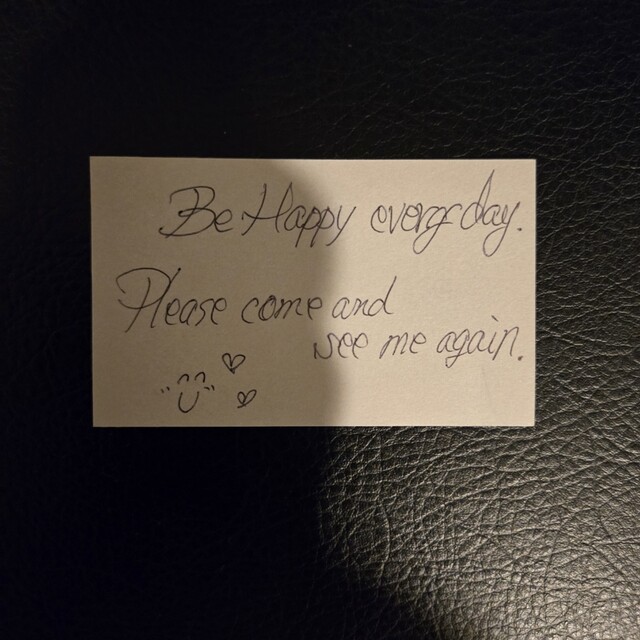 Be Happy every day.
Please come and
see me again.